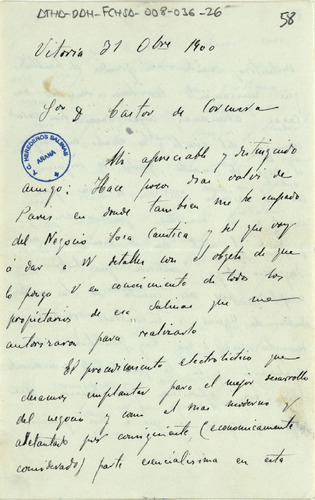 ATHA-DDH-FCHSA-008-036-26
58
Vitoria 31 Obre 1900
Sor D Castor de
A.C. HEREDEROS SALINAS
ARANA
Mi apreciable y distinguido
amigo: Hace pocos dias volvi de
Paris en donde tambien me he ocupado
del Negocio Sosa Caustica y del que voy
á dar a V detalles con el objeto de que
lo ponga V en conocimiento de todos los
propietarios de esa Salinas que me
autorizaron para realizarlo
El procedimiento electrolitico que
deseamos implantar para el mejor desarrollo
del negocio y como el mas moderno y
adelantado por consiguiente (economicamente
considerado) parte esencialisima en esta